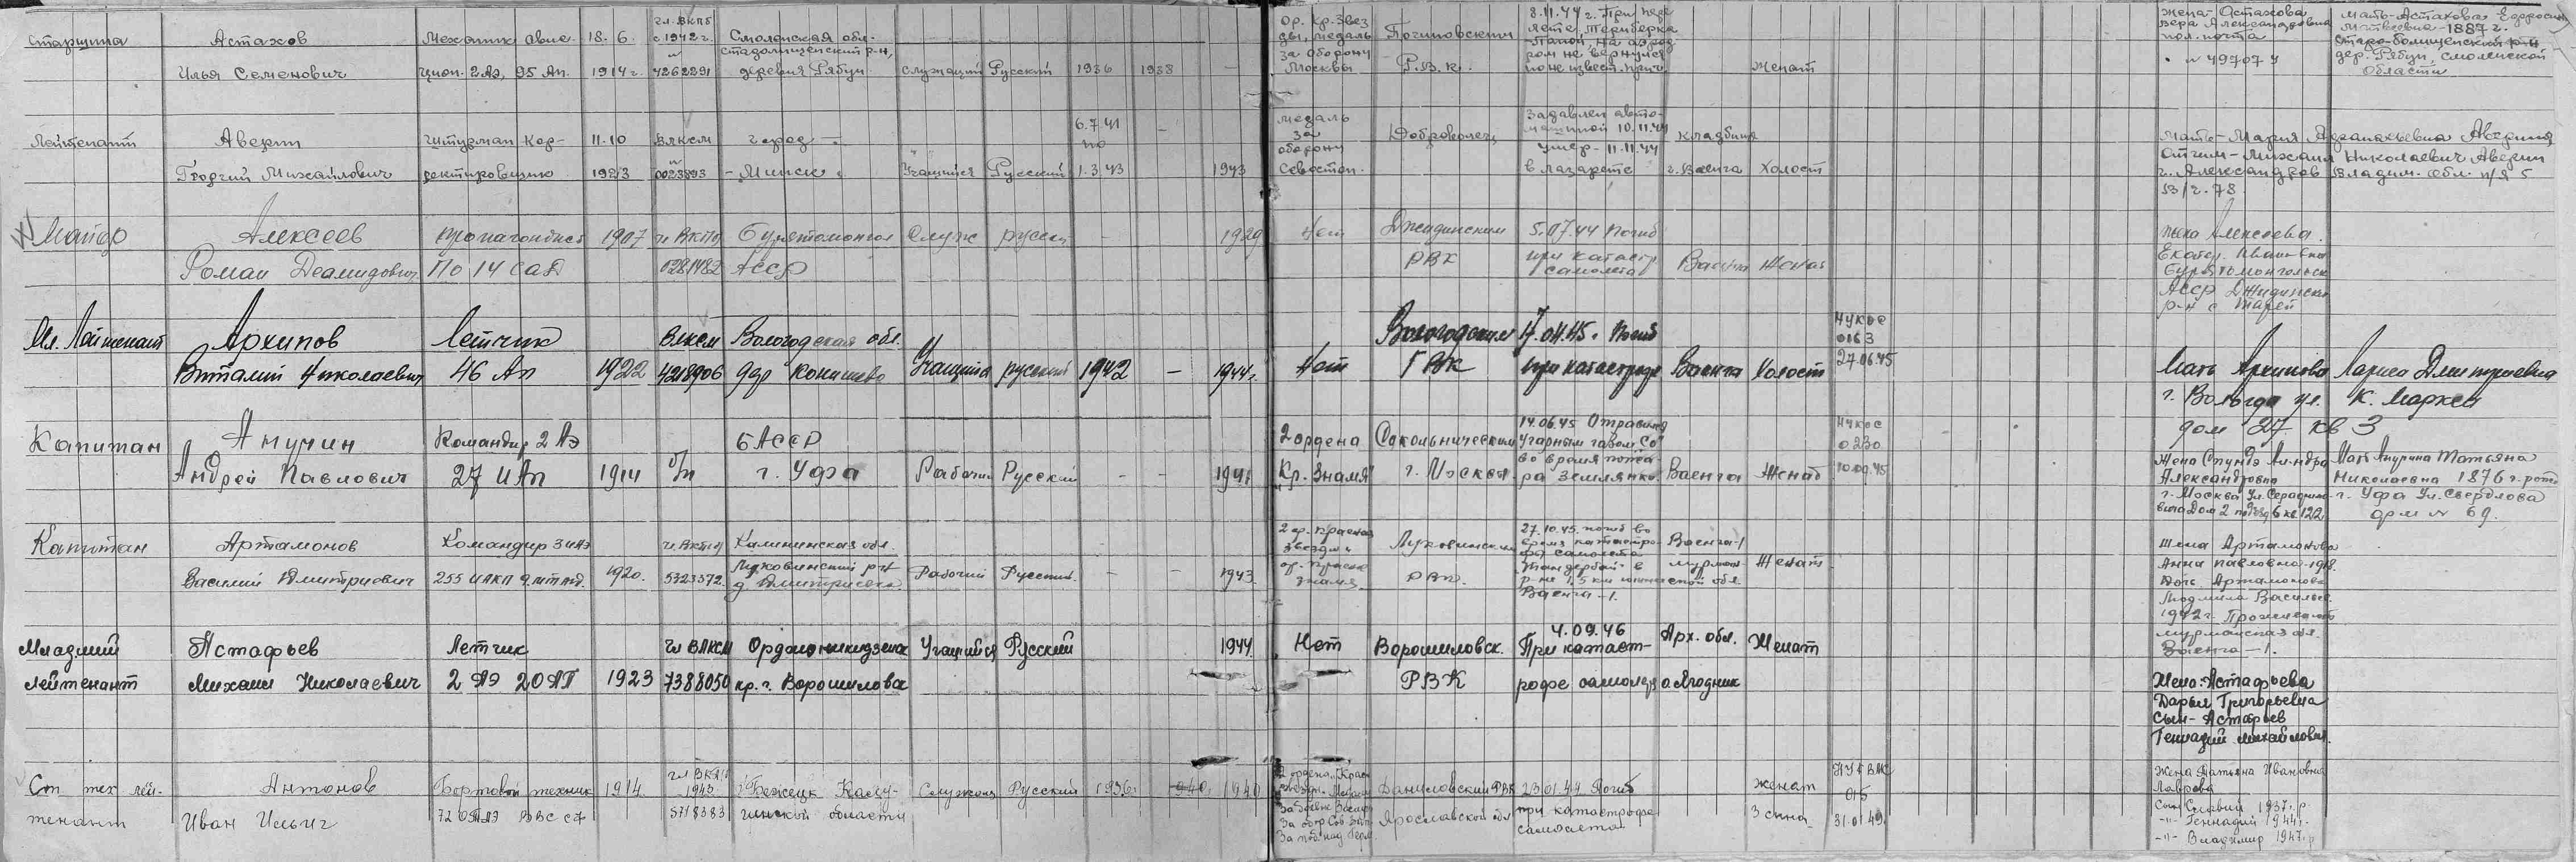 Старшина Астахов Механик авиа- 18.6. чл. ВКПб с 1942 г. Смоленская обл. Стодолищенский р-н,
Илья Семенович цион. 2 АЭ, 95 Ап. 1914 г. N 4262291 деревня Рябцы служащий Русский 1936 1938
ор. кр. Звез
ды, медаль
за оборону
Москвы
Починовским
Р.В.К.
8.11.44 г. При
на аэрод
ром не вернулся
по неизвест. прич.
женат
жена - Астахова
Вера Александровна
пол. почта
N 49707
мать - Астахова Ефросинья
Матвеевна - 1887 г.
дер. Рябцы, Смоленской
области
Лейтенант Аверин штурман кор- 11.10 ВЛКСМ город -
Георгий Михайлович ректировщик 1923 N 0023893 - Минск Учащийся Русский
6.7.41
по
1.3.43 - 1943
медаль
за
оборону
Севастоп.
Доброволец
Задавлен авто-
машиной 10.11.44
умер - 11.11.44
в лазарете
кладбище
г. Ваенга Холост
Мать - Мария Аверина
Отчим - Михаил Николаевич Аверин
г. Александров Владим. обл. п/я 5
53/2. 78.
Майор Алексеев пропагандист 1907 чл ВКПб Бурятомонгол служ русский - 1929
Роман Деомидович ПО 14 САД 0281482 АССР
Нет Джидинским 5.07.44 Погиб
РВК при катастр
самолета Ваенга Женат
жена Алексеева
Екатер. Ивановна
Бурятомонгольск
АССР Джидински
р-н с
Мл. Лейтенант Архипов Летчик ВЛКСМ Вологодская обл.
Виталий Николаевич 46 Ап 1922 4218906 дер Конищево Учащийся русский 1942 - 1944 г.
Вологодским 17.04.45 г. Погиб
Нет ГВК при катастрофе Ваенга Холост
НУКОС
0163
27.06.45
Мать Архипова Лариса Дмитриевна
г. Вологда ул. К. Маркса
дом 87 кв 3
Капитан Анучин Командир 2 АЭ БАССР
Андрей Павлович 27 ИАп 1914 б/п г. Уфа Рабочий Русский - - 1941
2 ордена
Кр. Знамя
Сокольническим
г. Москвы
14.06.45 Отравился
угарным газом "СО"
во время пожа-
ра землянки. Ваенга Женат
НУКОС
0230
10.09.45
Жена
Александровна
г. Москва Ул.
Дом 2 подъезд 6 кв. 122
Мать Анучина Татьяна
Николаевна 1876 г. рожд
г. Уфа Ул. Свердлова
дом N 69.
Капитан Артамонов Командир 3 АЭ чл. ВКПб Калининская обл.
Василий Дмитриевич 255 ИАКП 1920. 5323572. Луковинский р-н д. Рабочий Русский. - - 1943
2 ор. Красная
звезда и
ор. Красн.
знамя
Луковинским
РВК.
27.10.45. погиб во
время катастро-
фы самолета
в
р-не 1,5 км
Ваенга-1.
Ваенга-1
мурман-
ской обл
Женат
Жена Артамонова
Анна Павловна - 1918.
Дочь Артамонова
Людмила Василье
1942 г. Проживают
мурманская обл.
Ваенга-1.
Младший Астафьев Летчик чл ВЛКСМ Орджоникидзевск Учащийся Русский 1944
Лейтенант Михаил Николаевич 2 АЭ 20АП 1923 7388050 кр. г. Ворошиловск
Нет Ворошиловск.
РВК
4.09.46
При катаст-
рофе самолета
Арх. обл.
о Ягодник
Женат
Жена: Астафьева
Дарья Григорьевна
Сын - Астафьев
Геннадий Михайлович.
Ст тех лей- Антонов Бортовой техник 1914. чл ВКПб 1943. г. Бежецк Калу- Служащ Русский 1936. 1940
тенант Иван Ильич 72 ВВС СФ 5718383 жинской области
2 ордена "Красн
За боевые Заслуг
За обор Сов Зап.
За поб. над Герм.
Даниловский РВК
Ярославской обл
23.01.49 Погиб
при катастрофе
самолета
женат
3 сына
015
31.01.49.
Жена Татьяна Ивановна
Лаврова
Сын 1937 г.р.
-"- Геннадий 1944 г.
-"- Владимир 1947 г.